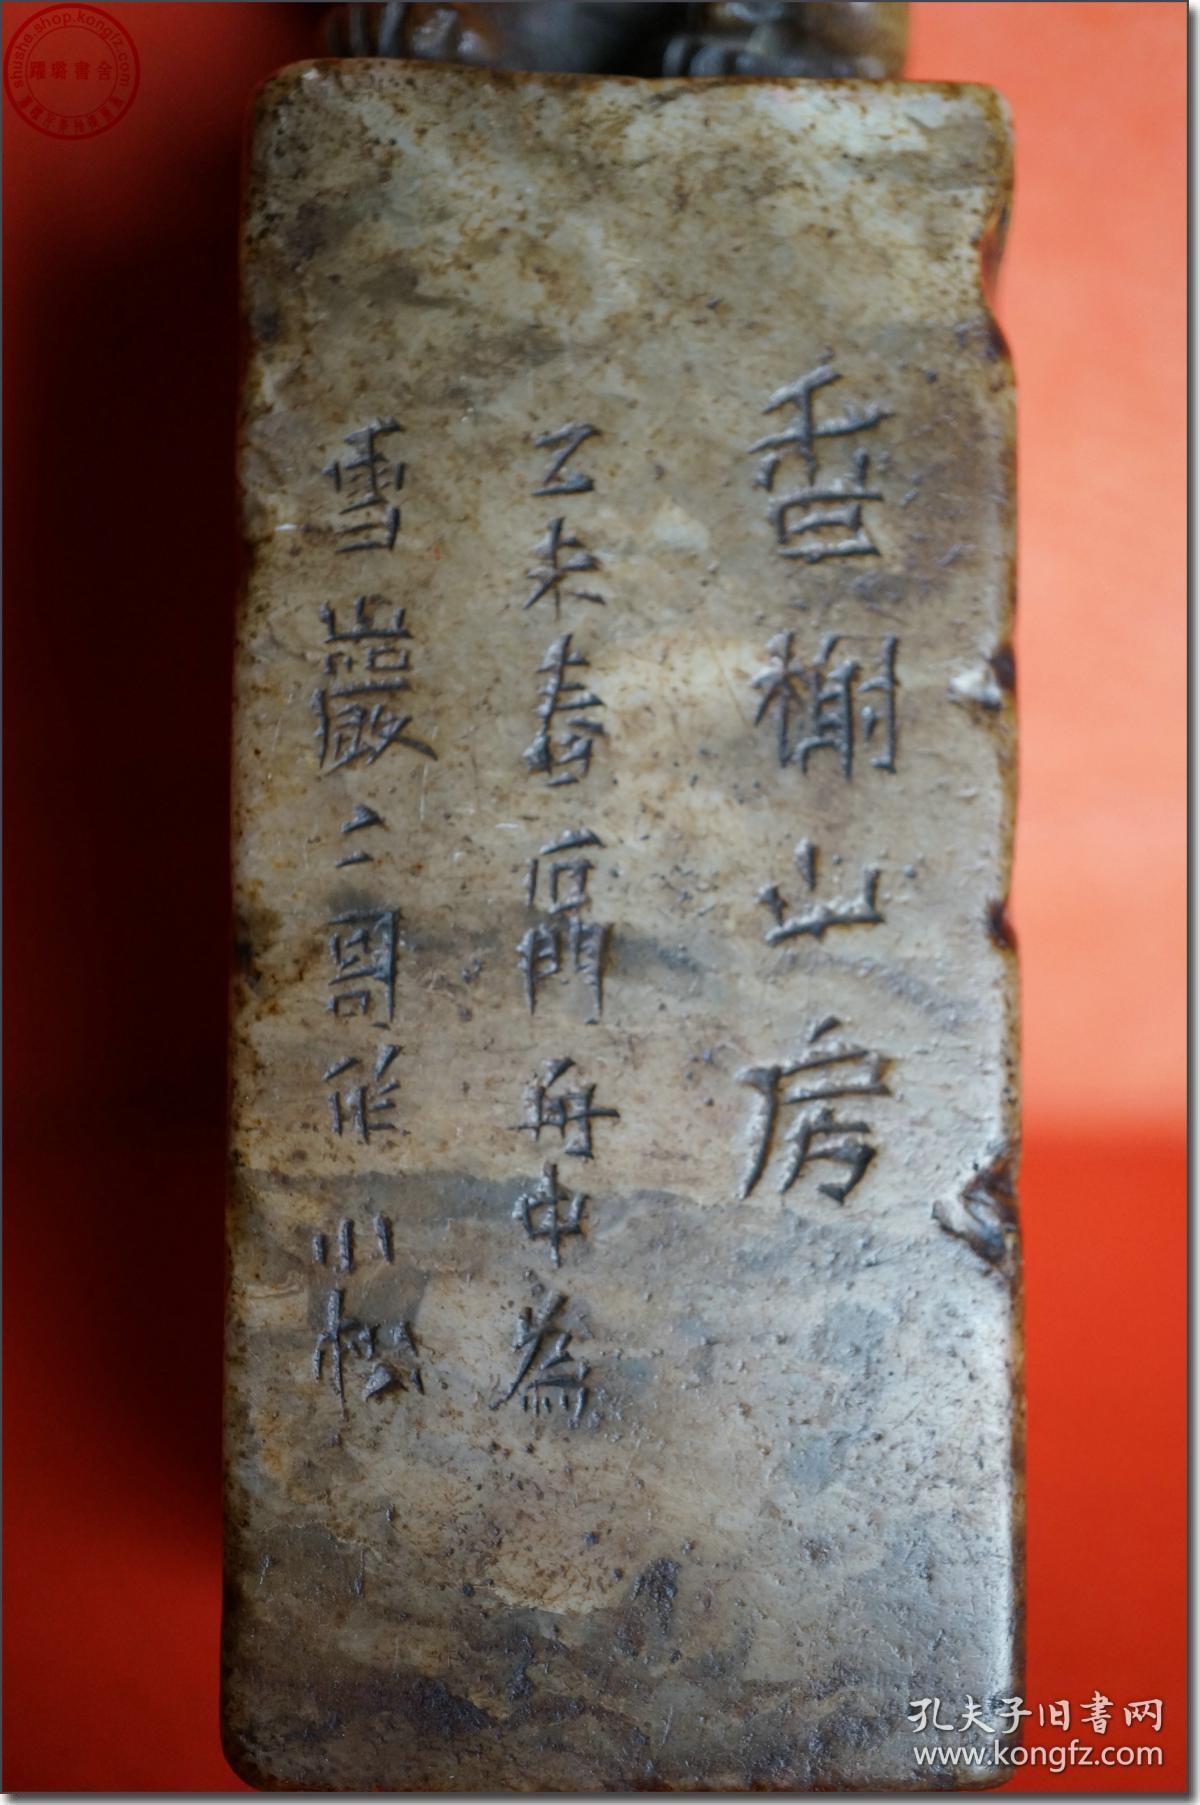 香榭山房
乙未春石門舟中為
雪巖二哥作 小松
shushe.shop.kongfz.com
躍璐書舍
孔夫子旧书网
www.kongfz.com